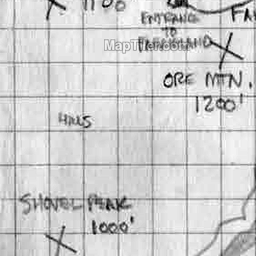 1100'
ENTRANCE
TO
FA
ORE MTN.
1200'
HILLS
SHOVEL PEAK
1000'